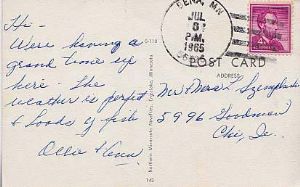 Hi-
Were having a
grand time up
here the
weather is perfect
& loads of fish
Ollie & Vena
BENA, MN
JUL
6
P.M.
1965
POST CARD
ADDRESS
Mr & Mrs
5996 Goodman
Chi, Ill.